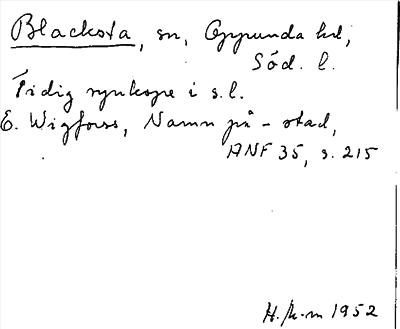 Blacksta, sn, Oppunda hd,
Söd. l.
Tidig synkope i s.l.
E. Wigforss, Namn på -stad,
ANF 35, s. 215
H. /k-m 1952